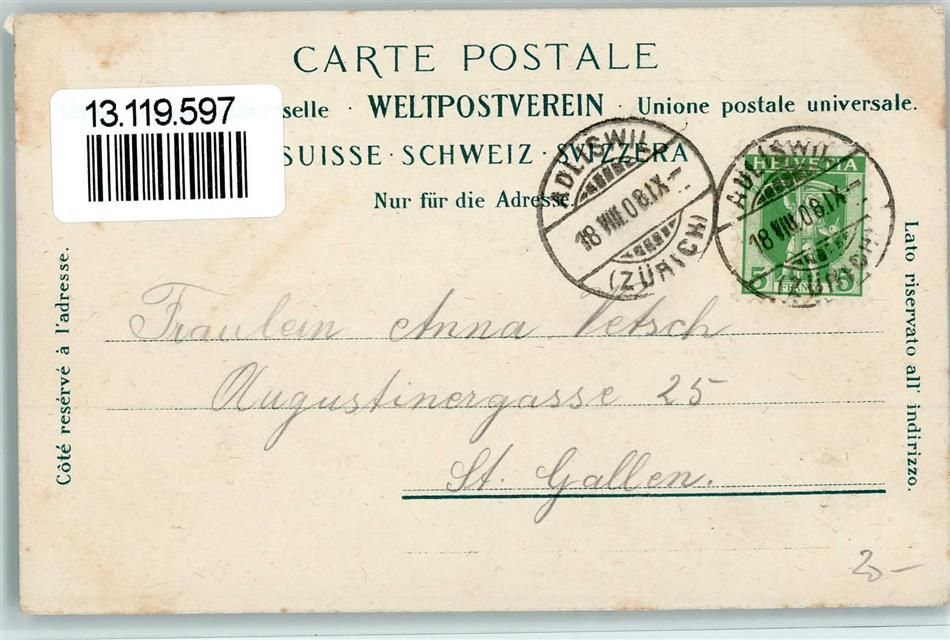 CARTE POSTALE
13.119.597
selle · WELTPOSTVEREIN · Unione postale universale.
SUISSE · SCHWEIZ · SVIZZERA
Nur für die Adresse.
ADLISWIL
18.VIII.08.IX-
(ZÜRICH)
HELVETIA
5 5
ADLISWIL
18.VIII.08.IX-
(ZÜRICH)
Côté resérvé à l'adresse.
Lato riservato all' indirizzo.
Fräulein Anna Vetsch
Augustinergasse 25
St. Gallen.
20-